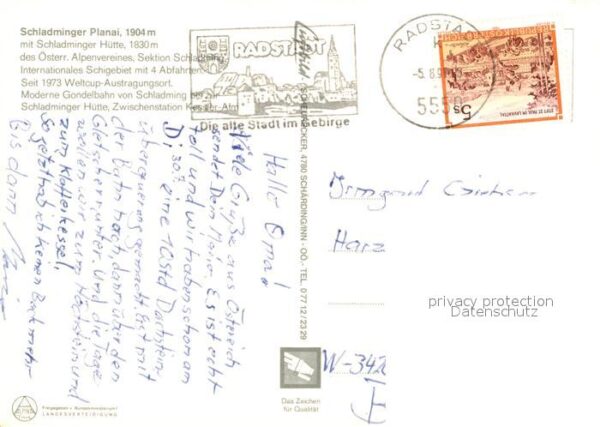 Schladminger Planai, 1904 m
mit Schladminger Hütte, 1830 m
des Österr. Alpenvereines, Sektion Schladming
Internationales Schigebiet mit 4 Abfahrten
Seit 1973 Weltcup-Austragungsort.
Moderne Gondelbahn von Schladming bis zur
Schladminger Hütte, Zwischenstation Kessler-Alm
RADSTADT
Die alte Stadt im Gebirge
RADSTA
-5.8.9
5550
5s
STIFT ST. PAUL IM LAVANTTAL
REPUBLIK ÖSTERREICH
4780 SCHÄRDING/INN - OÖ. - TEL. 0 77 12 / 23 29
Hallo Oma!
Viele Grüße aus Österreich
sendet Dein Es ist echt
toll und wir haben schon am
Di, 30.7. eine 10 Std Dachstein-
überquerung gemacht. Erst mit
der Bahn hoch, dann über den
Gletscher runter. Und die Tage
wollen wir zum Hochstein und
zum Klafferkessel.
So jetzt hab ich keinen Bock mehr
Bis dann
Irmgard
Harz
W-342
privacy protection
Datenschutz
Das Zeichen
für Qualität
Freigegeben v. Bundesministerium f.
LANDESVERTEIDIGUNG